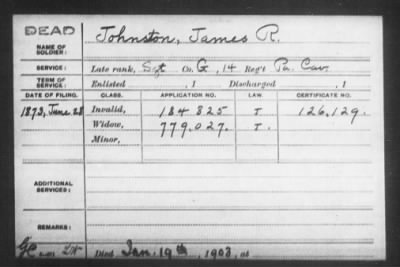 DEAD
NAME OF SOLDIER: Johnston, James R.
SERVICE: Late rank, Sgt Co. G, 14 Reg't Pa. Cav.
TERM OF SERVICE: Enlisted , 1 Discharged , 1
DATE OF FILING. CLASS. APPLICATION NO. LAW. CERTIFICATE NO.
1873, June 28 Invalid, 184825 J 126,129.
Widow, 779.027. J.
Minor,
ADDITIONAL SERVICES:
REMARKS:
Died Jan. 19th, 1903, at